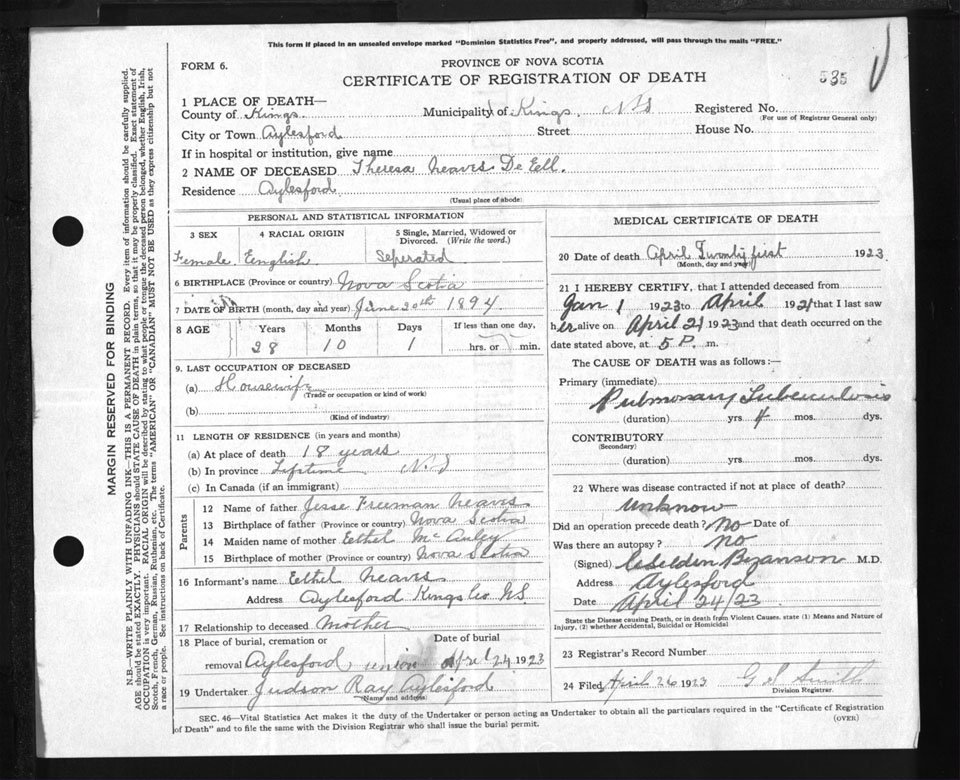 This form if placed in an unsealed envelope marked "Dominion Statistics Free", and properly addressed, will pass through the mails "FREE."
FORM 6.
PROVINCE OF NOVA SCOTIA
CERTIFICATE OF REGISTRATION OF DEATH
535
1 PLACE OF DEATH—
County of Kings Municipality of Kings, NS Registered No.
(For use of Registrar General only)
City or Town Aylesford Street House No.
If in hospital or institution, give name
2 NAME OF DECEASED Theresa Neaves De Eell.
Residence Aylesford
(Usual place of abode)
PERSONAL AND STATISTICAL INFORMATION
3 SEX 4 RACIAL ORIGIN 5 Single, Married, Widowed or Divorced. (Write the word.)
Female English Seperated
6 BIRTHPLACE (Province or country) Nova Scotia
7 DATE OF BIRTH (month, day and year) June 20th 1894
8 AGE Years Months Days If less than one day,
28 10 1 hrs. or min.
9. LAST OCCUPATION OF DECEASED
(a) Housewife
(Trade or occupation or kind of work)
(b)
(Kind of industry)
11 LENGTH OF RESIDENCE (in years and months)
(a) At place of death 18 years
(b) In province Lifetime N.S
(c) In Canada (if an immigrant)
Parents
12 Name of father Jesse Freeman Neaves
13 Birthplace of father (Province or country) Nova Scotia
14 Maiden name of mother Eethel McAuley
15 Birthplace of mother (Province or country) Nova Scotia
16 Informant's name Eethel Neaves
Address Aylesford Kings Co NS.
17 Relationship to deceased Mother
18 Place of burial, cremation or Date of burial
removal Aylesford union April 24 1923
19 Undertaker Judson Ray Aylesford
(Name and address)
MEDICAL CERTIFICATE OF DEATH
20 Date of death April Twenty first 1923
(Month, day and year)
21 I HEREBY CERTIFY, that I attended deceased from
Jan 1 1923 to April 1921 that I last saw
her alive on April 21 1923 and that death occurred on the
date stated above, at 5 P. m.
The CAUSE OF DEATH was as follows:—
Primary (immediate)
Pulmonary Tuberculosis
(duration) yrs 4 mos. dys.
CONTRIBUTORY
(Secondary)
(duration) yrs. mos. dys.
22 Where was disease contracted if not at place of death?
Unknow
Did an operation precede death? No Date of
Was there an autopsy? no
(Signed) Bzanson M.D.
Address Aylesford
Date April 24/23
State the Disease causing Death, or in death from Violent Causes. state (1) Means and Nature of
Injury, (2) whether Accidental, Suicidal or Homicidal
23 Registrar's Record Number
24 Filed April 26 1923 G S Smith
Division Registrar.
SEC. 46—Vital Statistics Act makes it the duty of the Undertaker or person acting as Undertaker to obtain all the particulars required in the "Certificate of Registration
of Death" and to file the same with the Division Registrar who shall issue the burial permit.
(OVER)
MARGIN RESERVED FOR BINDING
N.B.—WRITE PLAINLY WITH UNFADING INK—THIS IS A PERMANENT RECORD. Every item of information should be carefully supplied.
AGE should be stated EXACTLY. PHYSICIANS should STATE CAUSE OF DEATH in plain terms, so that it may be properly classified. Exact statement of
OCCUPATION is very important. RACIAL ORIGIN will be described by stating to what people or tongue the deceased person belonged, whether English, Irish,
Scotch, French, German, Russian, Ruthenian, etc. The terms "AMERICAN" OR "CANADIAN" MUST NOT BE USED as they express citizenship but not
a race or people. See instructions on back of Certificate.